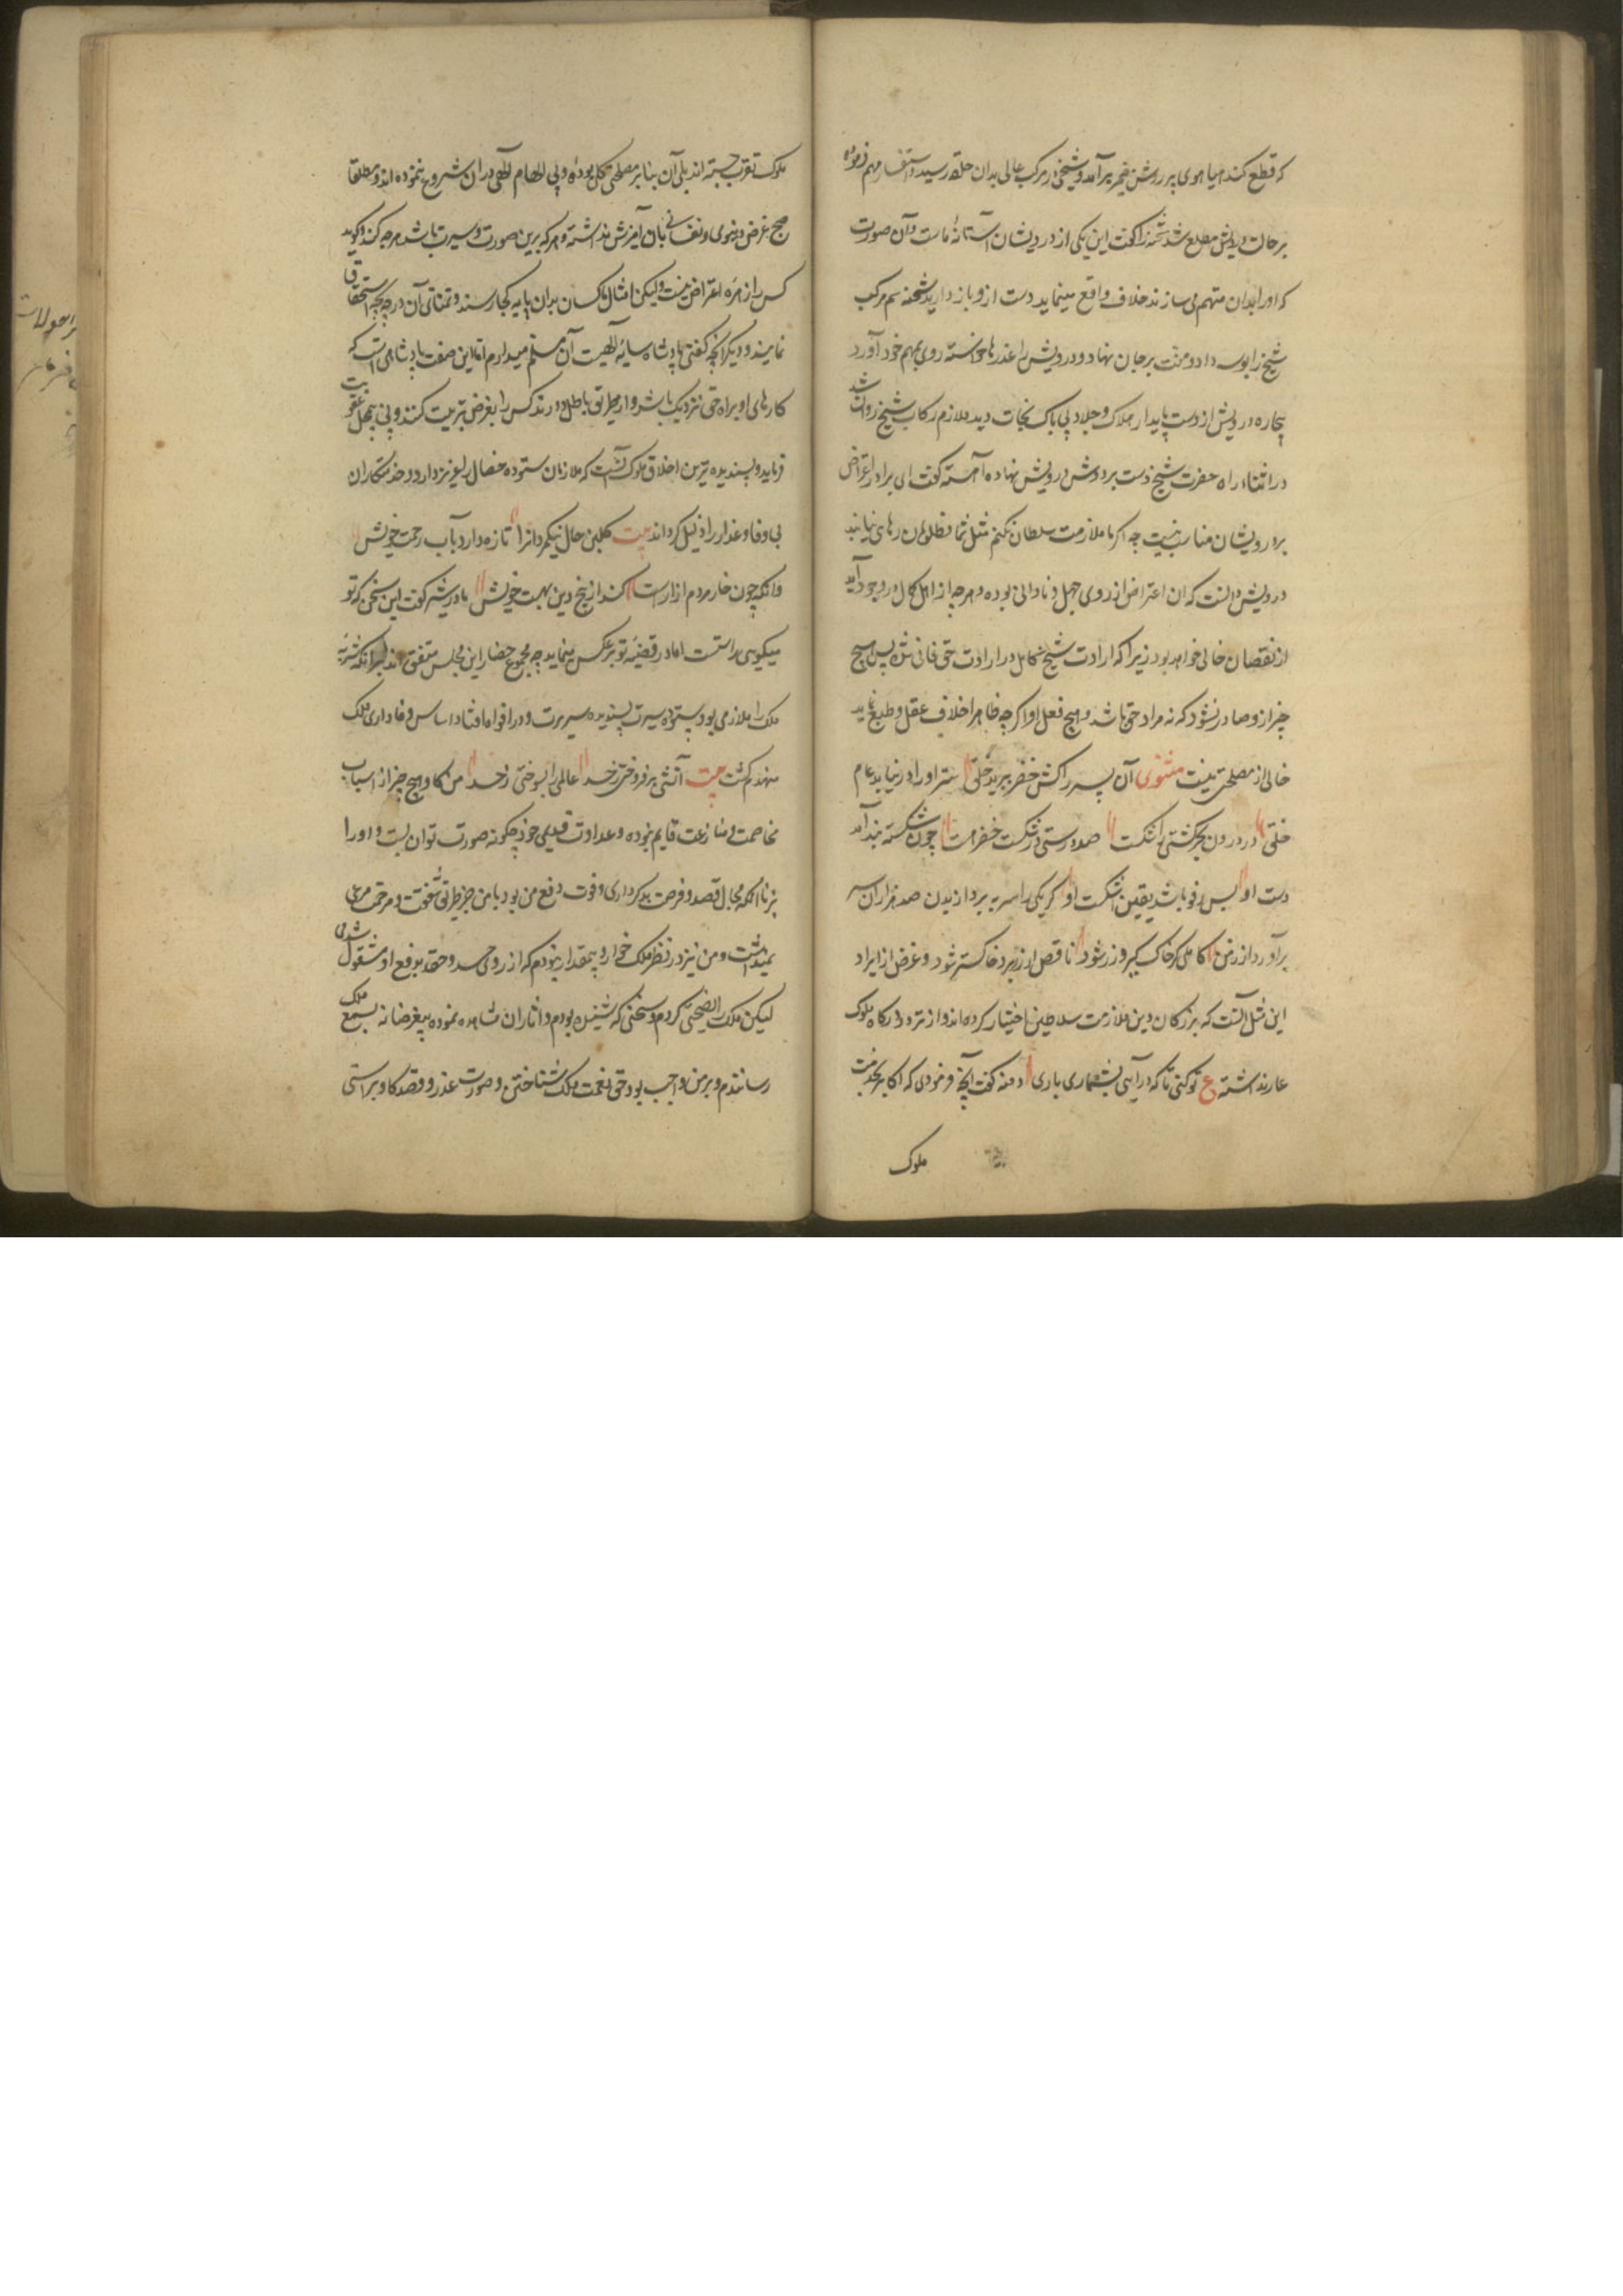 که قطع کند هیاهوی پر روش ضمیر برآمد و شیخی در مرکب عالی بدان حلقه رسید و استفسار مهم فرموده
بر حالت درویش مطلع شد شحنه را گفت این یکی از درویشان آستانهٔ ماست و آن صورت
که او را بدان متهم می سازند خلاف واقع مینماید دست ازو باز دارید شحنه سم مرکب
شیخ را بوسه داد و منت بر جان نهاد و درویش را عذرها خواسته روی بمهم خود آورد
بیچاره درویش از دست پایدار هلاک و جلاد بی باک نجات دید ملازم رکاب شیخ روان شد
در اثناء راه حضرت شیخ دست بر دوش درویش نهاده آهسته گفت ای برادر اعتراض
بر درویشان مناسب نیست چه اگر ما ملازمت سلطان نکنیم مثل شما مظلومان رهای نیابند
درویش دانست که آن اعتراض از روی جهل و نادانی بوده و هرچه از اهل کمال در وجود آید
از نقصان خالی خواهد بود زیرا که ارادت شیخ کامل در ارادت حق فانی شده پس هیچ
چیز ازو صادر نشود که نه مراد حق باشد و هیچ فعل او اگرچه ظاهرا خلاف عقل و طبع نماید
خالی از مصلحتی نیست مثنوی آن پسر را کش خضر ببرید حلق سر او را در نیابد عام
خلق در درون بحر کشتی را شکست صد درستی در شکست خضر هست چون شکسته بند آمد
دست او پس رفو باشد یقین اشکست او گر یکی را سر به برد از بدن صد هزاران سر
برآورد از زمن کاملی گر خاک گیرد زر شود ناقص ار زر برد خاکستر شود و غرض از ایراد
این مثل آنست که بزرگان دین ملازمت سلاطین اختیار کرده اند و از تردد درگاه ملوک
عار نداشته ع تو کئی تا که در آیی بشماری باری دمنه گفت آنچه فرمودی که اکابر بخدمت
ملوک
ملوک تقرب جسته اند بلی آن بنابر مصلحتی کلی بوده و بی الهام آلهی در آن شروع ننموده اند و مطلقا
هیچ غرض دنیوی و نفسانی بآن آمیزش نداشته و هر که برین صورت و سیرت باشد هرچه کند و گوید
کس را زهرهٔ اعتراض نیست ولیکن امثال ما کسان بدان پایه کجا رسند و تمنای آن درجه بچه استحقاق
نمایند و دیگر آنچه گفتی پادشاه سایهٔ آلهیست آن مسلم میدارم اما این صفت پادشاهی است که
کارهای او براه حق نزدیک باشد و از طریق باطل دور نه کس را بغرض تربیت کند و نی بجهل عقوبت
فرماید و پسندیده ترین اخلاق ملوک آنست که ملازمان ستوده خصال را عزیز دارد و خدمتکاران
بی وفا و غدار را ذلیل گرداند بیت گلبن حال نیکمردان را تازه دارد بآب رحمت خویش
وانکه چون خار مردم آزارست کند از بیخ و بن بهمت خویش مادر شیر گفت این سخن که تو
میکویی راستست اما در قضیهٔ تو بر عکس مینماید چه مجموع حضار این مجلس متفق اند بر آنکه شنزبه
ملک را ملازمی بود ستوده سیرت پسندیده سریرت و در افواه افتاد اساس وفاداری ملک
منهدم گشت بیت آتشی برفروختی ز حسد عالمی را بسوختی ز حسد من کاو هیچ چیز از اسباب
مخاصمت و منازعت قایم نبوده و عداوت قدیمی خود چگونه صورت توان بست و او را
نیز با آنکه مجال قصد و فرصت بدکرداری و قوت دفع من بود با من جز طریق شفقت و مرحمت مرعی
نمیداشت و من نیز در نظر ملک خوار و بیمقدار نبودم که از روی حسد و حقد بدفع او مشغول شدمی
لیکن ملک را نصیحتی کردم و سخنی که شنیده بودم و آثار آن مشاهده نموده بیغرضانه بسمع ملک
رسانیدم و بر من واجب بود حق نعمت ملک شناختن و صورت عذر و قصد کاو براستی